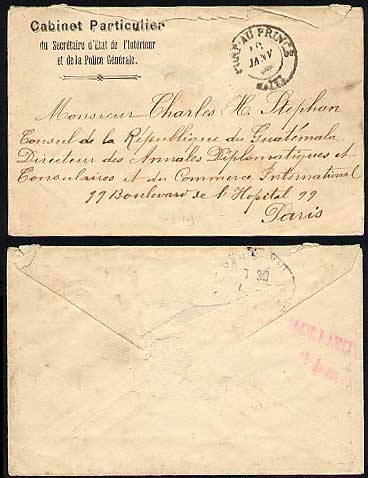 Cabinet Particulier
du Secrétaire d'Etat de l'Intérieur
et de la Police Générale.
PORT AU PRINCE
JANV
HAITI
Monsieur Charles H. Stephan
Consul de la République du Guatémala
Directeur des Annales Diplomatiques et
Consulaires et du Commerce International
99 Boulevard de l'Hopital 99
Paris
7 30